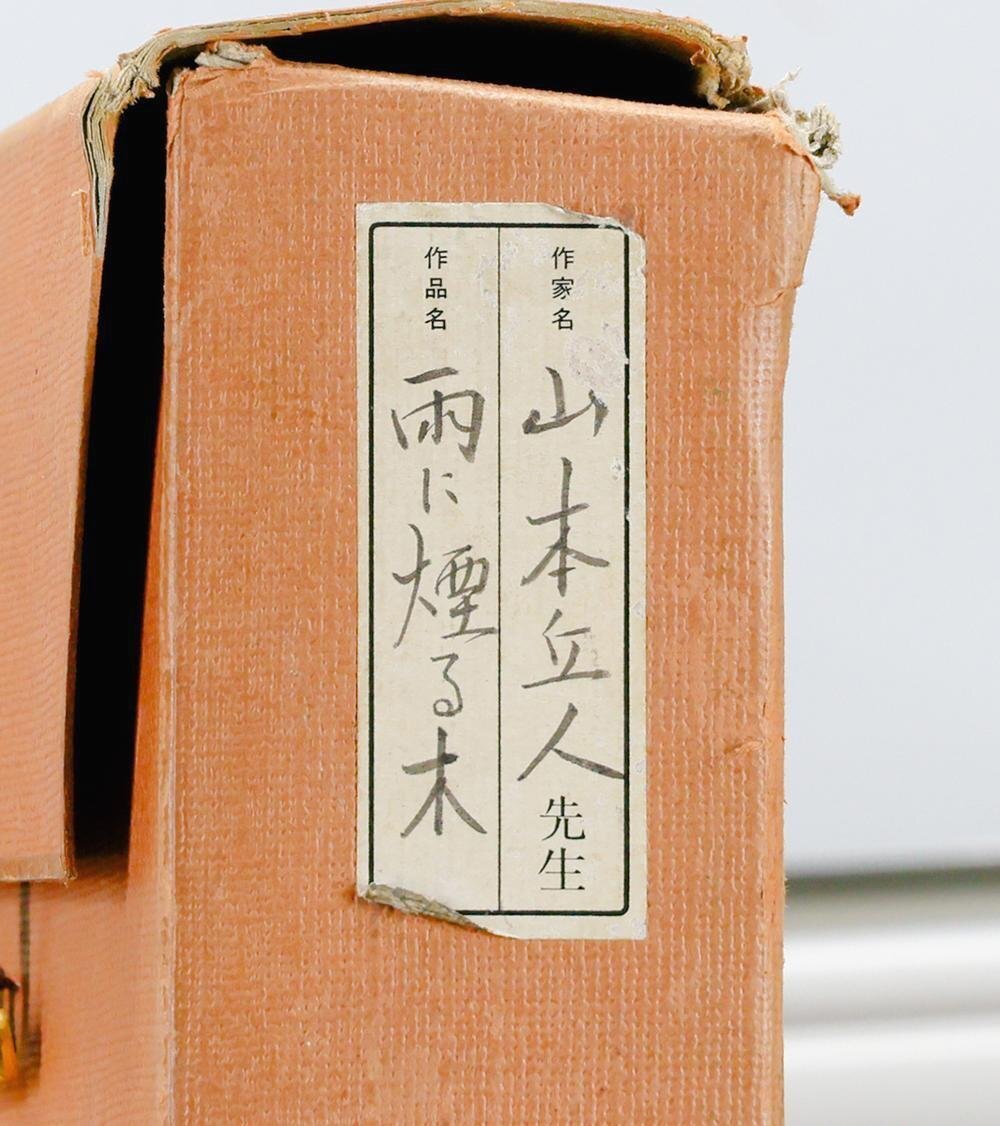 作家名 山本丘人先生
作品名 雨に煙る木